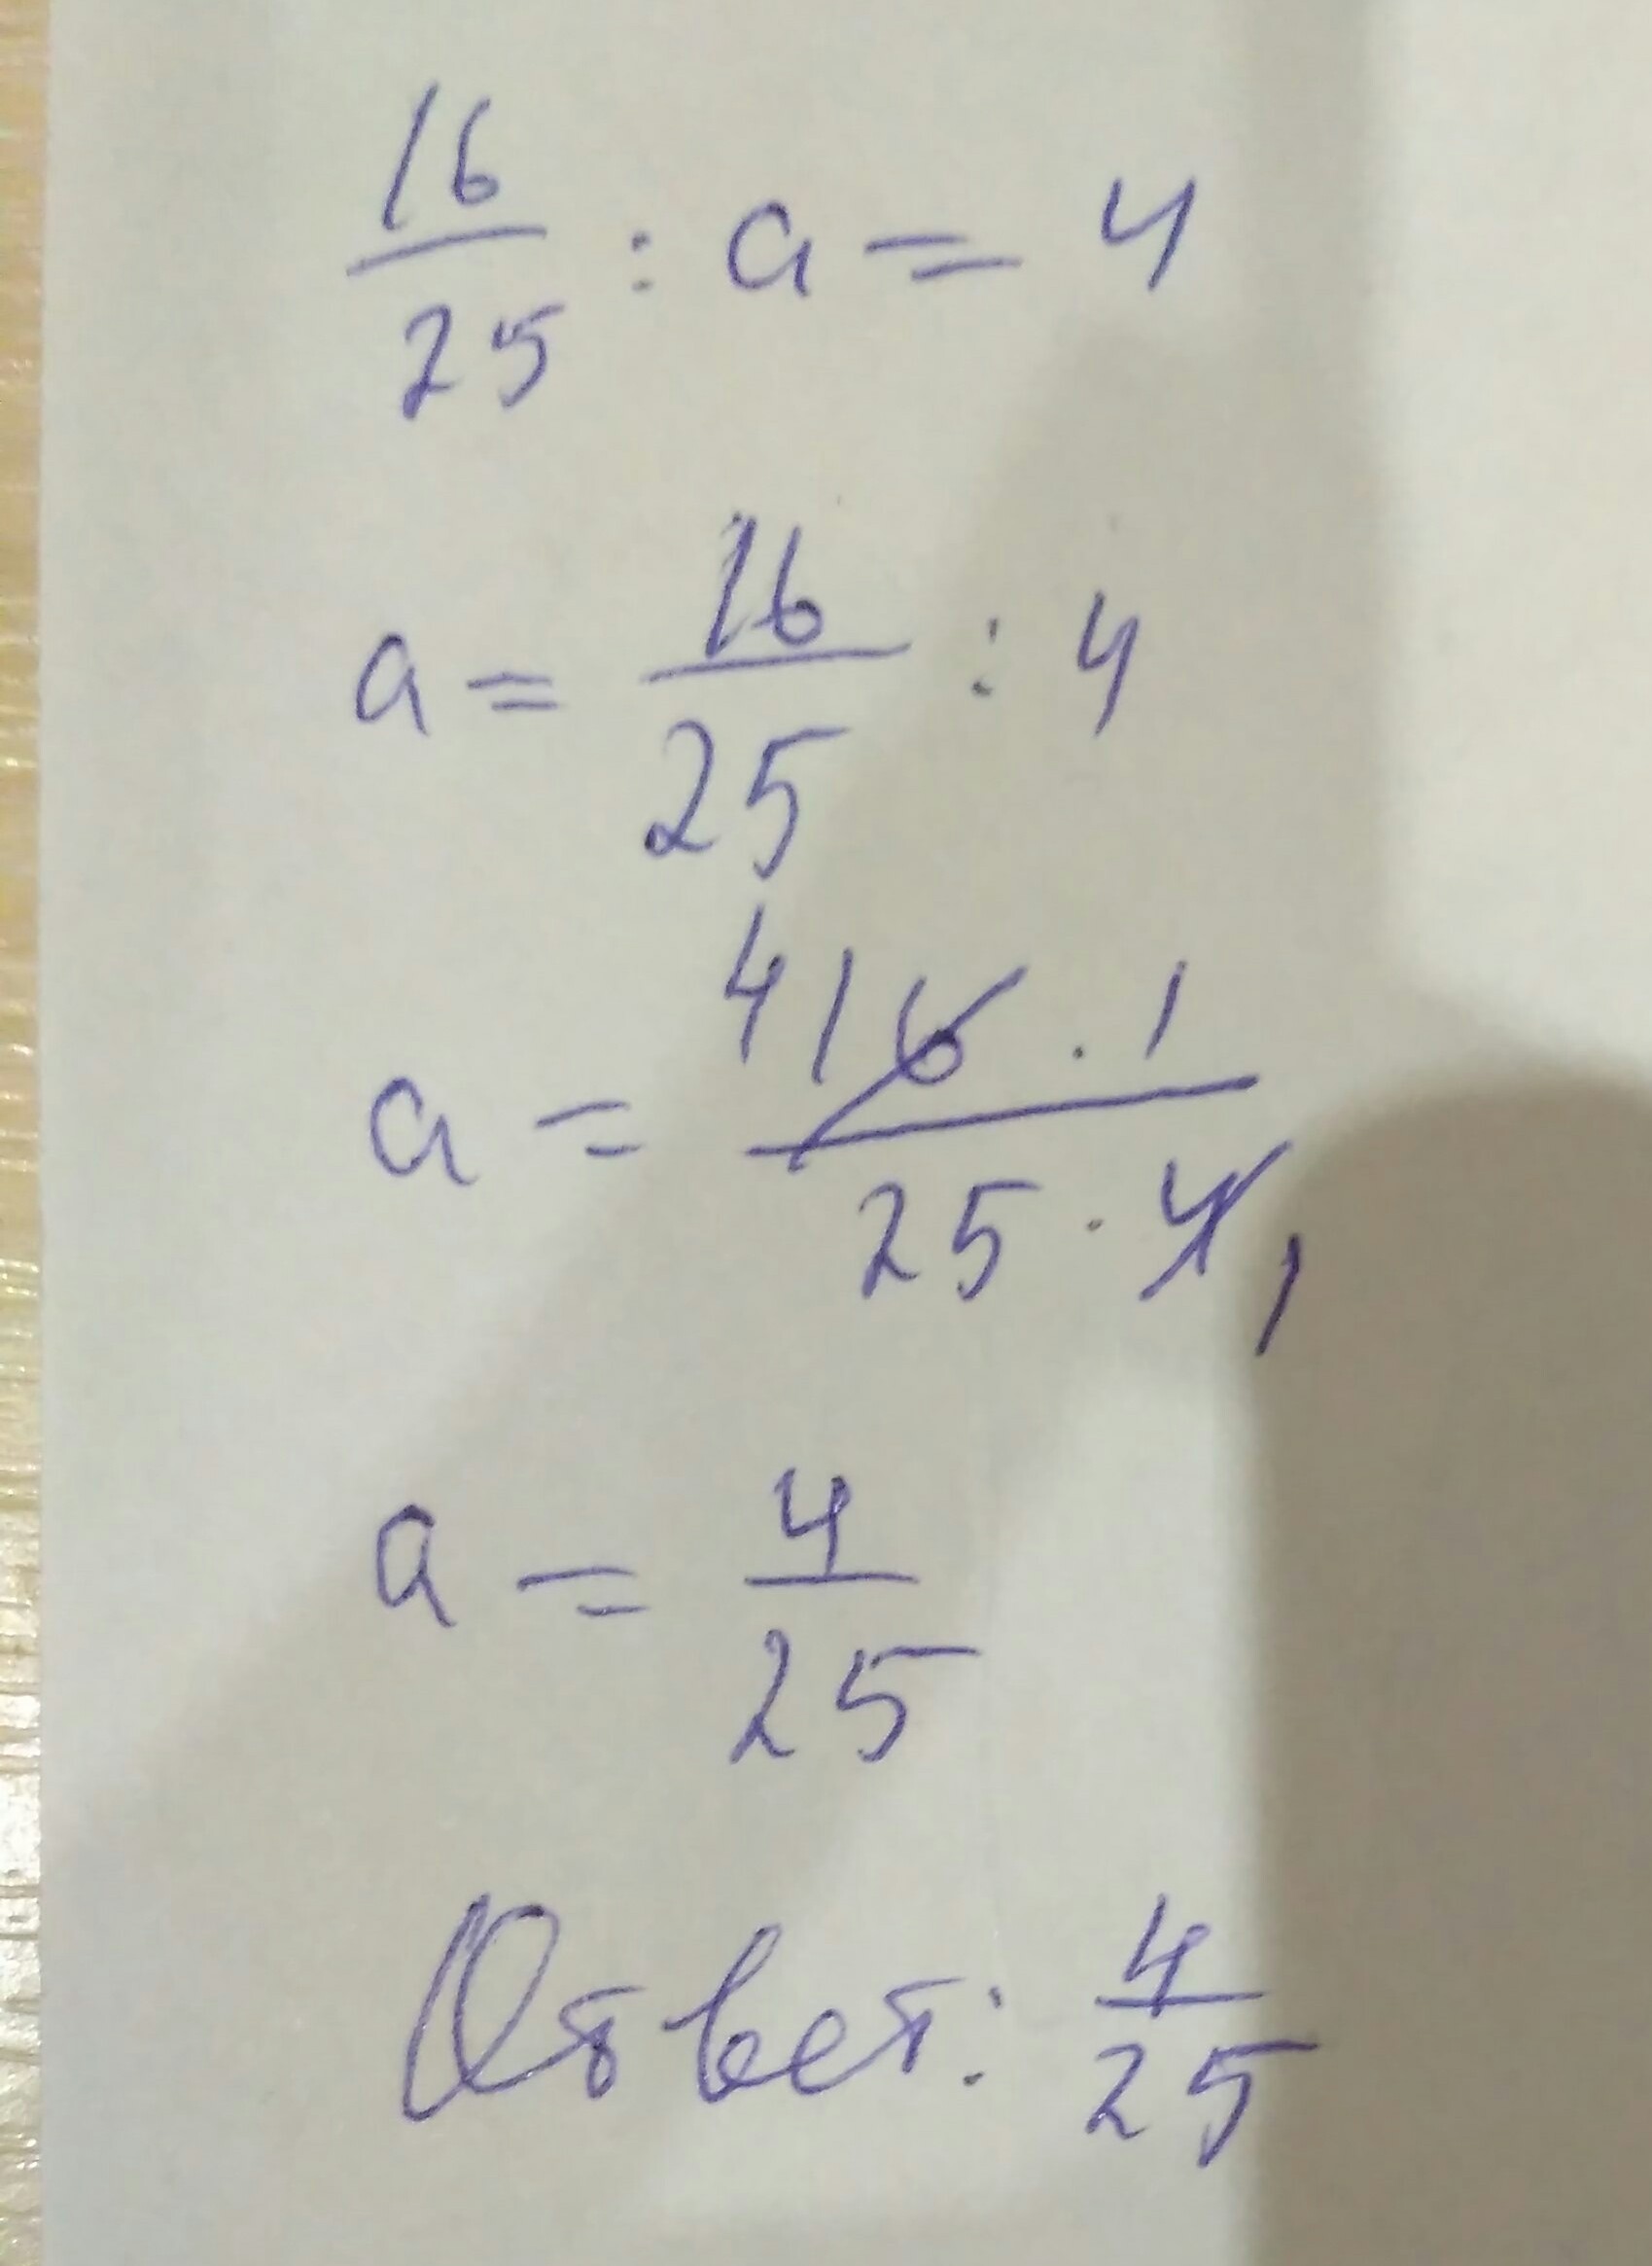 16/25 : a = 4
a = 16/25 : 4
a = 4 16 · 1 / 25 · 4 1
a = 4/25
Ответ: 4/25